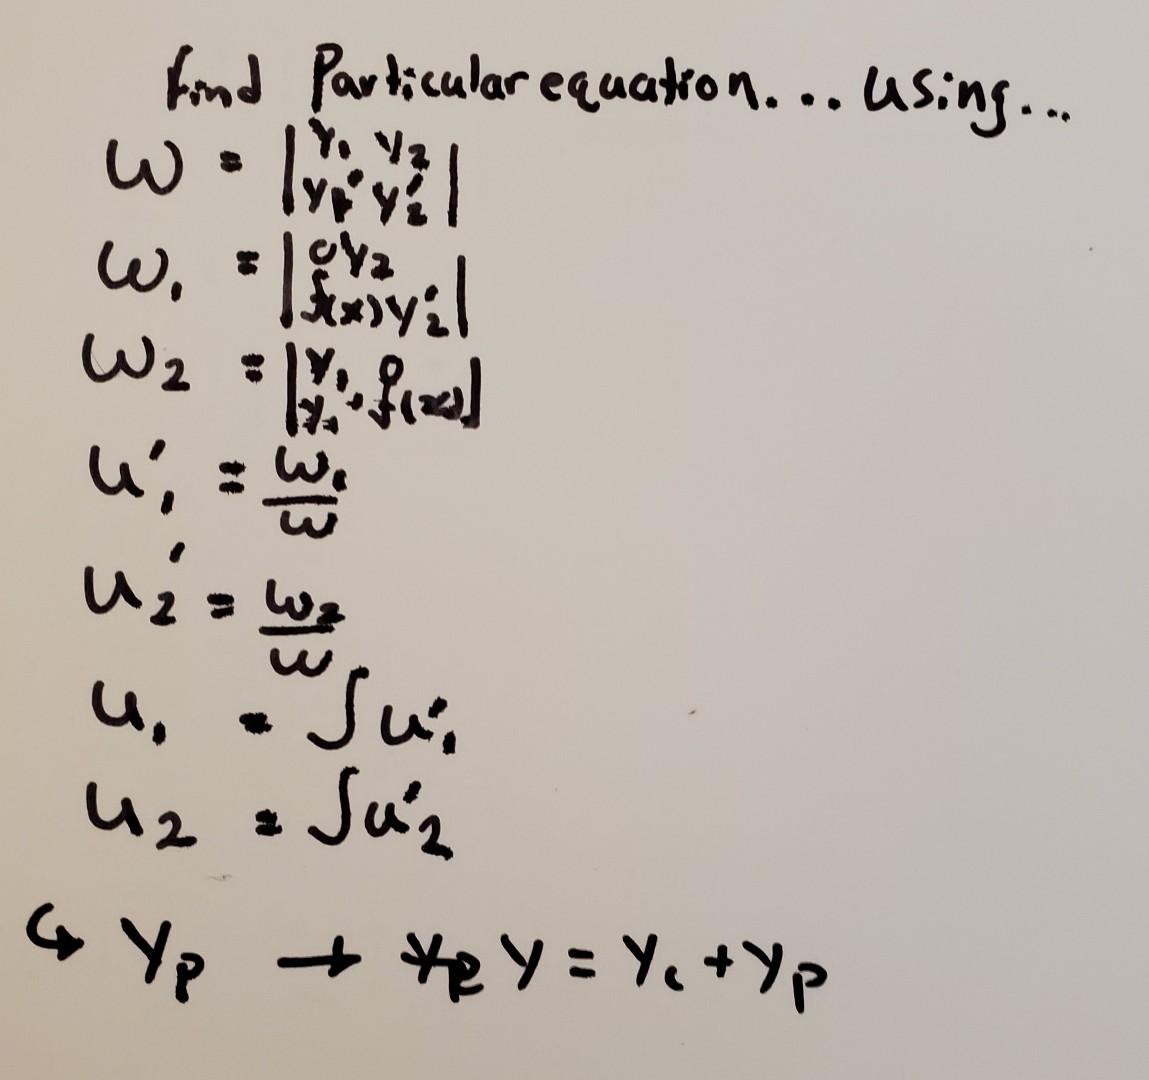 find Particular equation.... using...
W = | y₁ y₂
y₁' y₂' |
W₁ = | 0 y₂
f(x) y₂' |
W₂ = | y₁ 0
y₁' f(x) |
u₁' = W₁
W
u₂' = W₂
W
u₁ = ∫ u₁'
u₂ = ∫ u₂'
↪ yₚ → y = y꜀ + yₚ